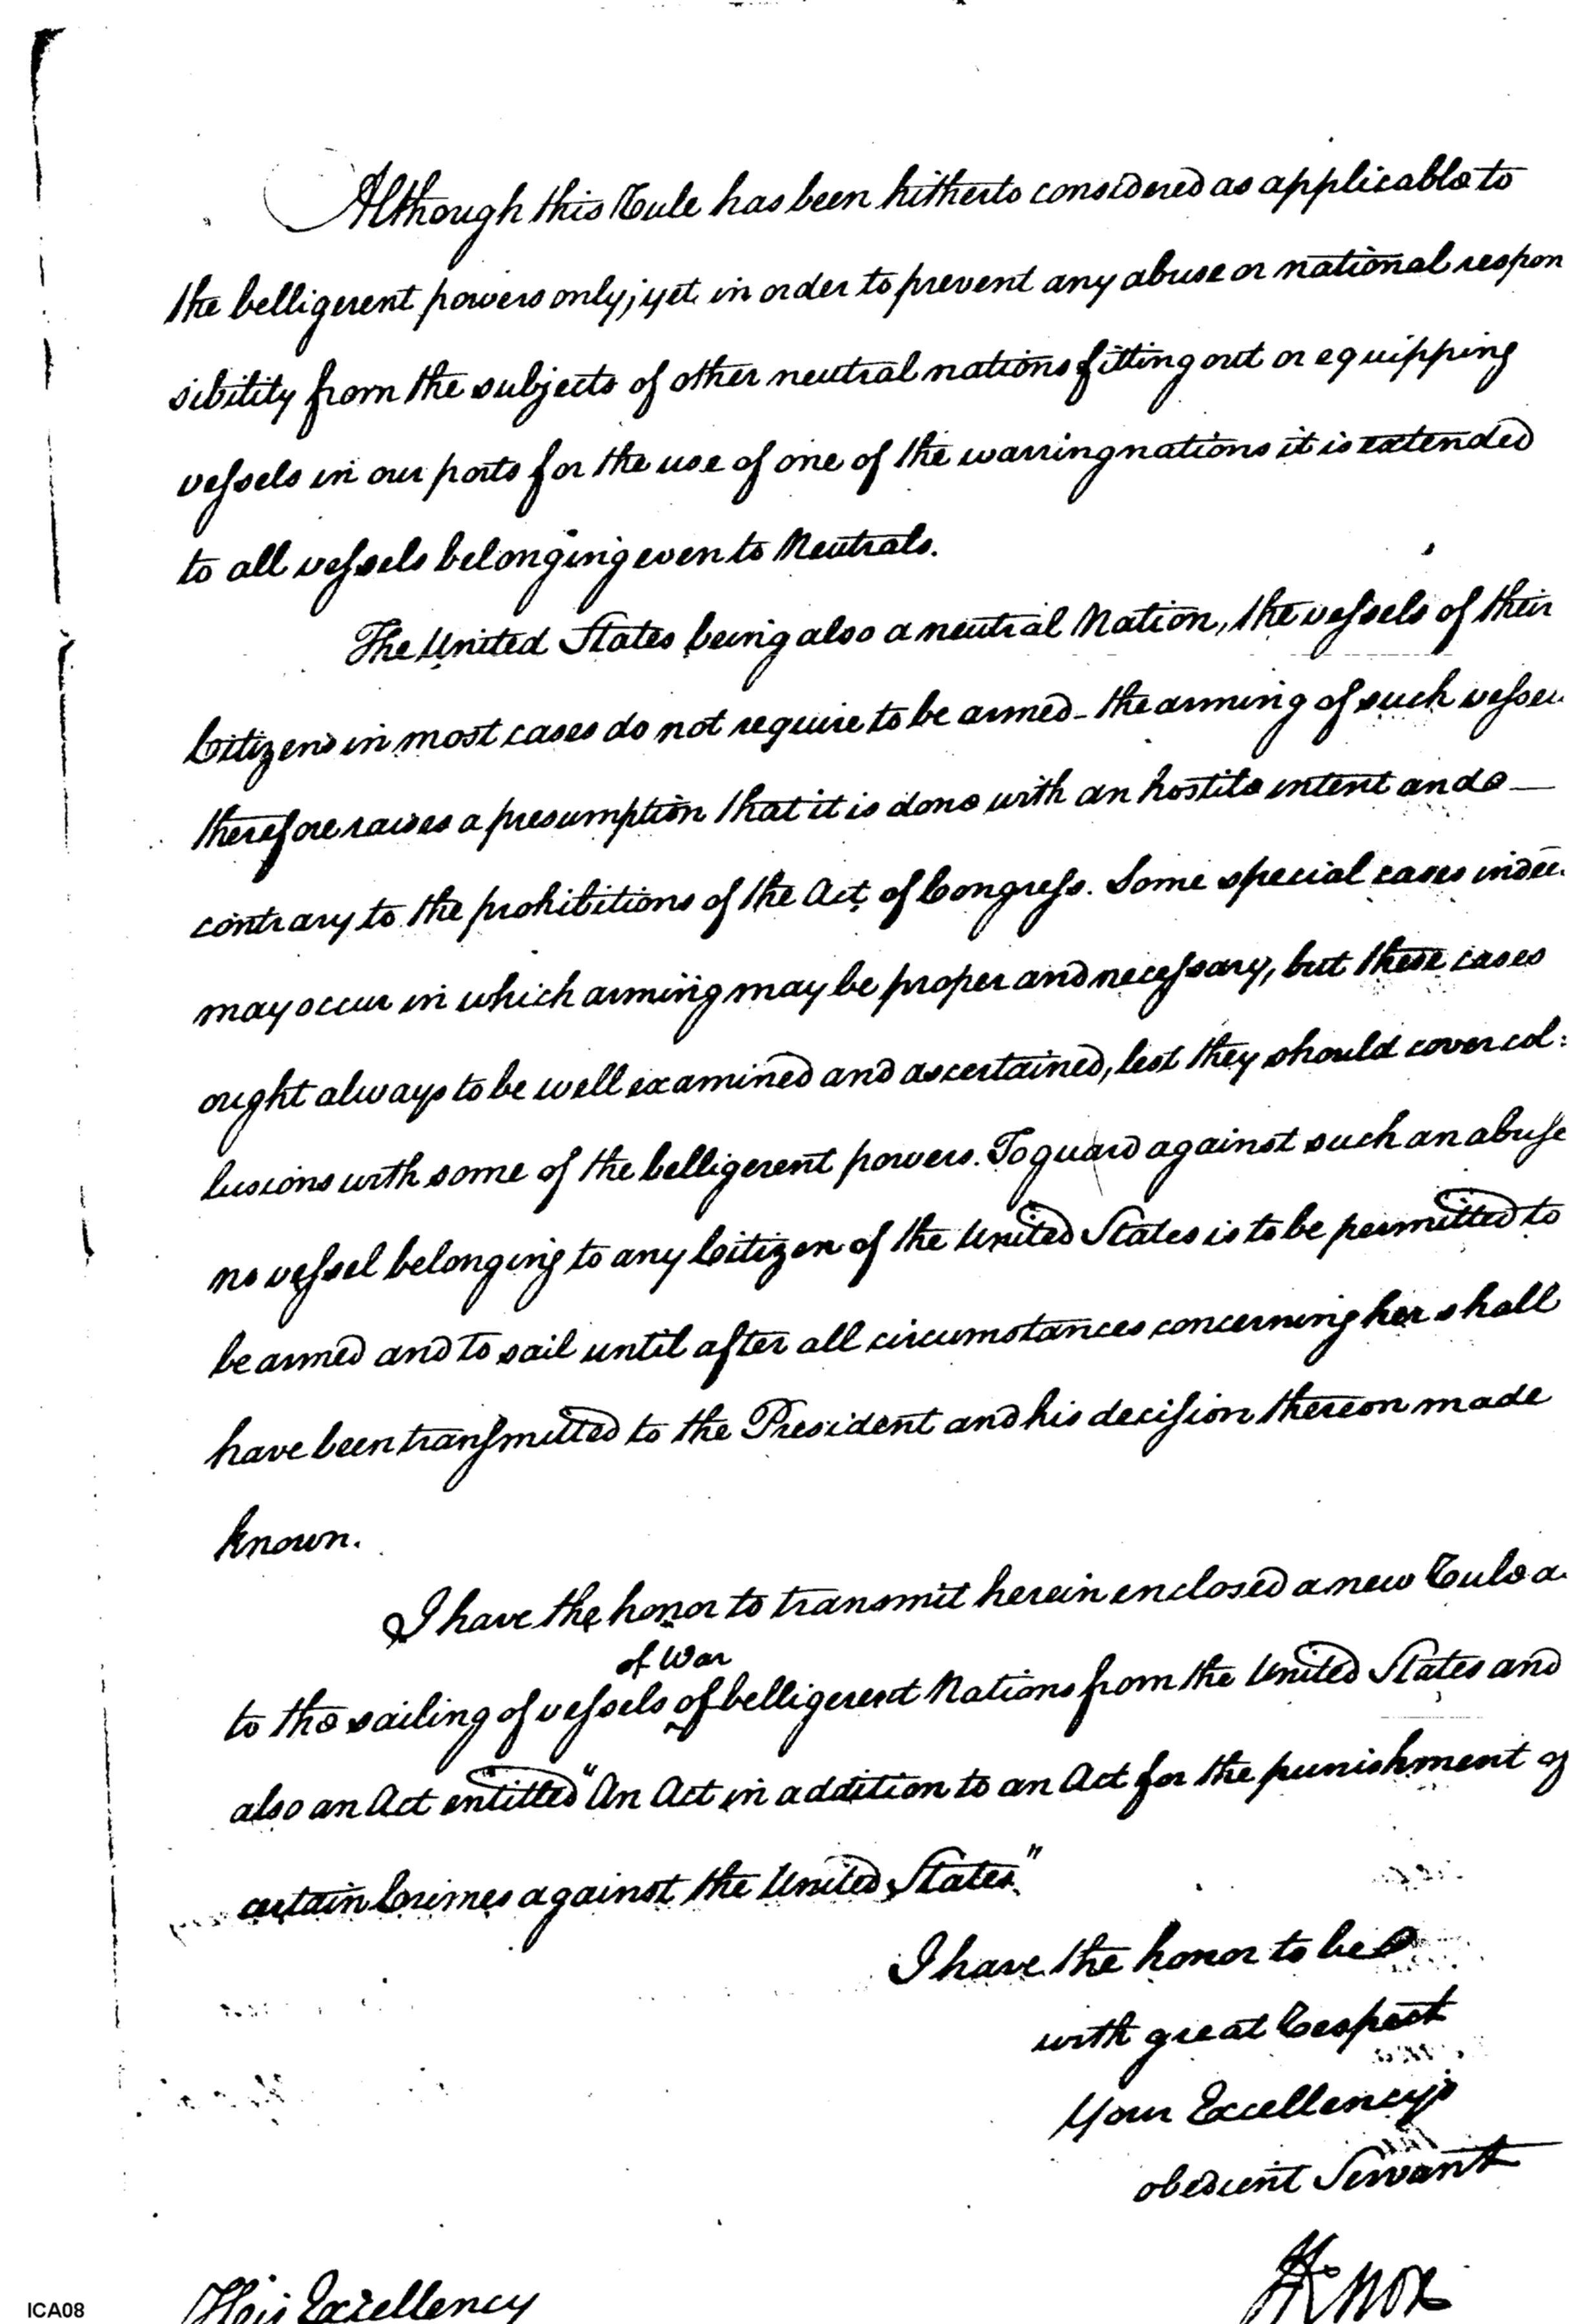 Although this Rule has been hitherto considered as applicable to
the belligerent powers only; yet in order to prevent any abuse or national respon
sibility from the subjects of other neutral nations fitting out or equipping
vessels in our ports for the use of one of the warring nations it is extended
to all vessels belonging even to Neutrals.
The United States being also a neutral Nation, the vessels of their
Citizens in most cases do not require to be armed - the arming of such
therefore raises a presumption that it is done with an hostile intent and
contrary to the prohibitions of the Act of Congress. Some special cases
may occur in which arming may be proper and necessary, but these cases
ought always to be well examined and ascertained, lest they should cover col:
lusions with some of the belligerent powers. To guard against such an abuse
no vessel belonging to any Citizen of the United States is to be permitted to
be armed and to sail until after all circumstances concerning her shall
have been transmitted to the President and his decision thereon made
known.
I have the honor to transmit herein enclosed a new Rule a
of War
to the sailing of vessels of belligerent Nations from the United States and
also an Act entitled "An Act in addition to an Act for the punishment of
certain Crimes against the United States"
I have the honor to be
with great Respect
Your Excellency's
obedient Servant
HKnox
His Excellency
ICA08